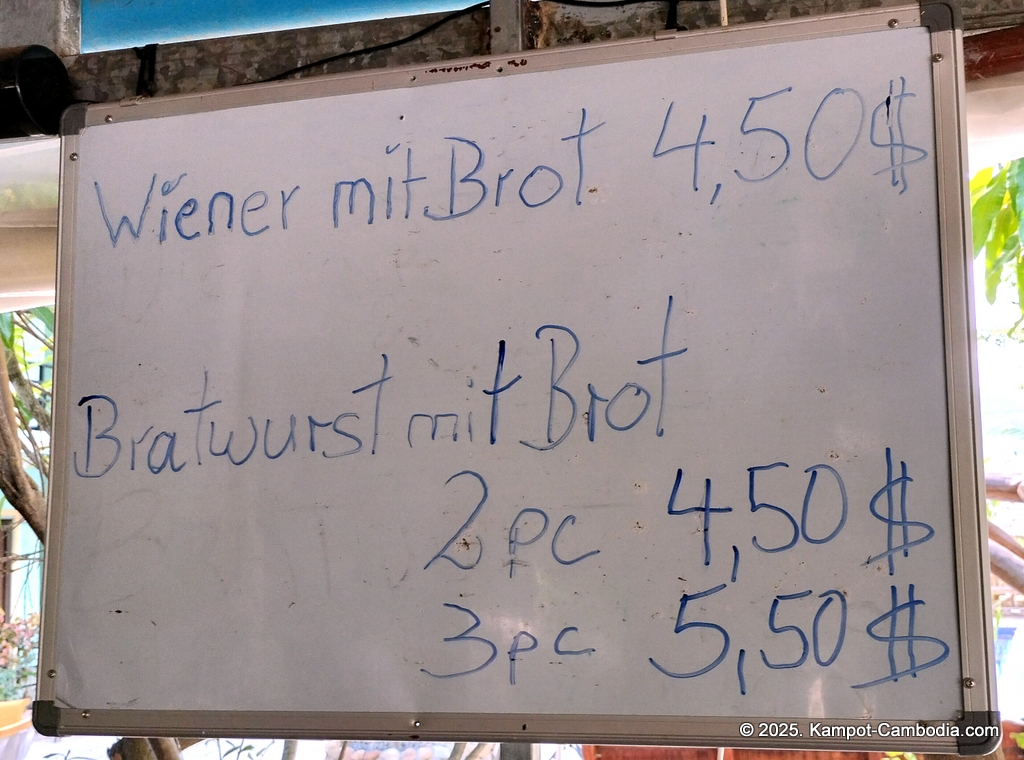 Wiener mit Brot 4,50$
Bratwurst mit Brot
2 pc 4,50 $
3 pc 5,50 $
© 2025. Kampot-Cambodia.com